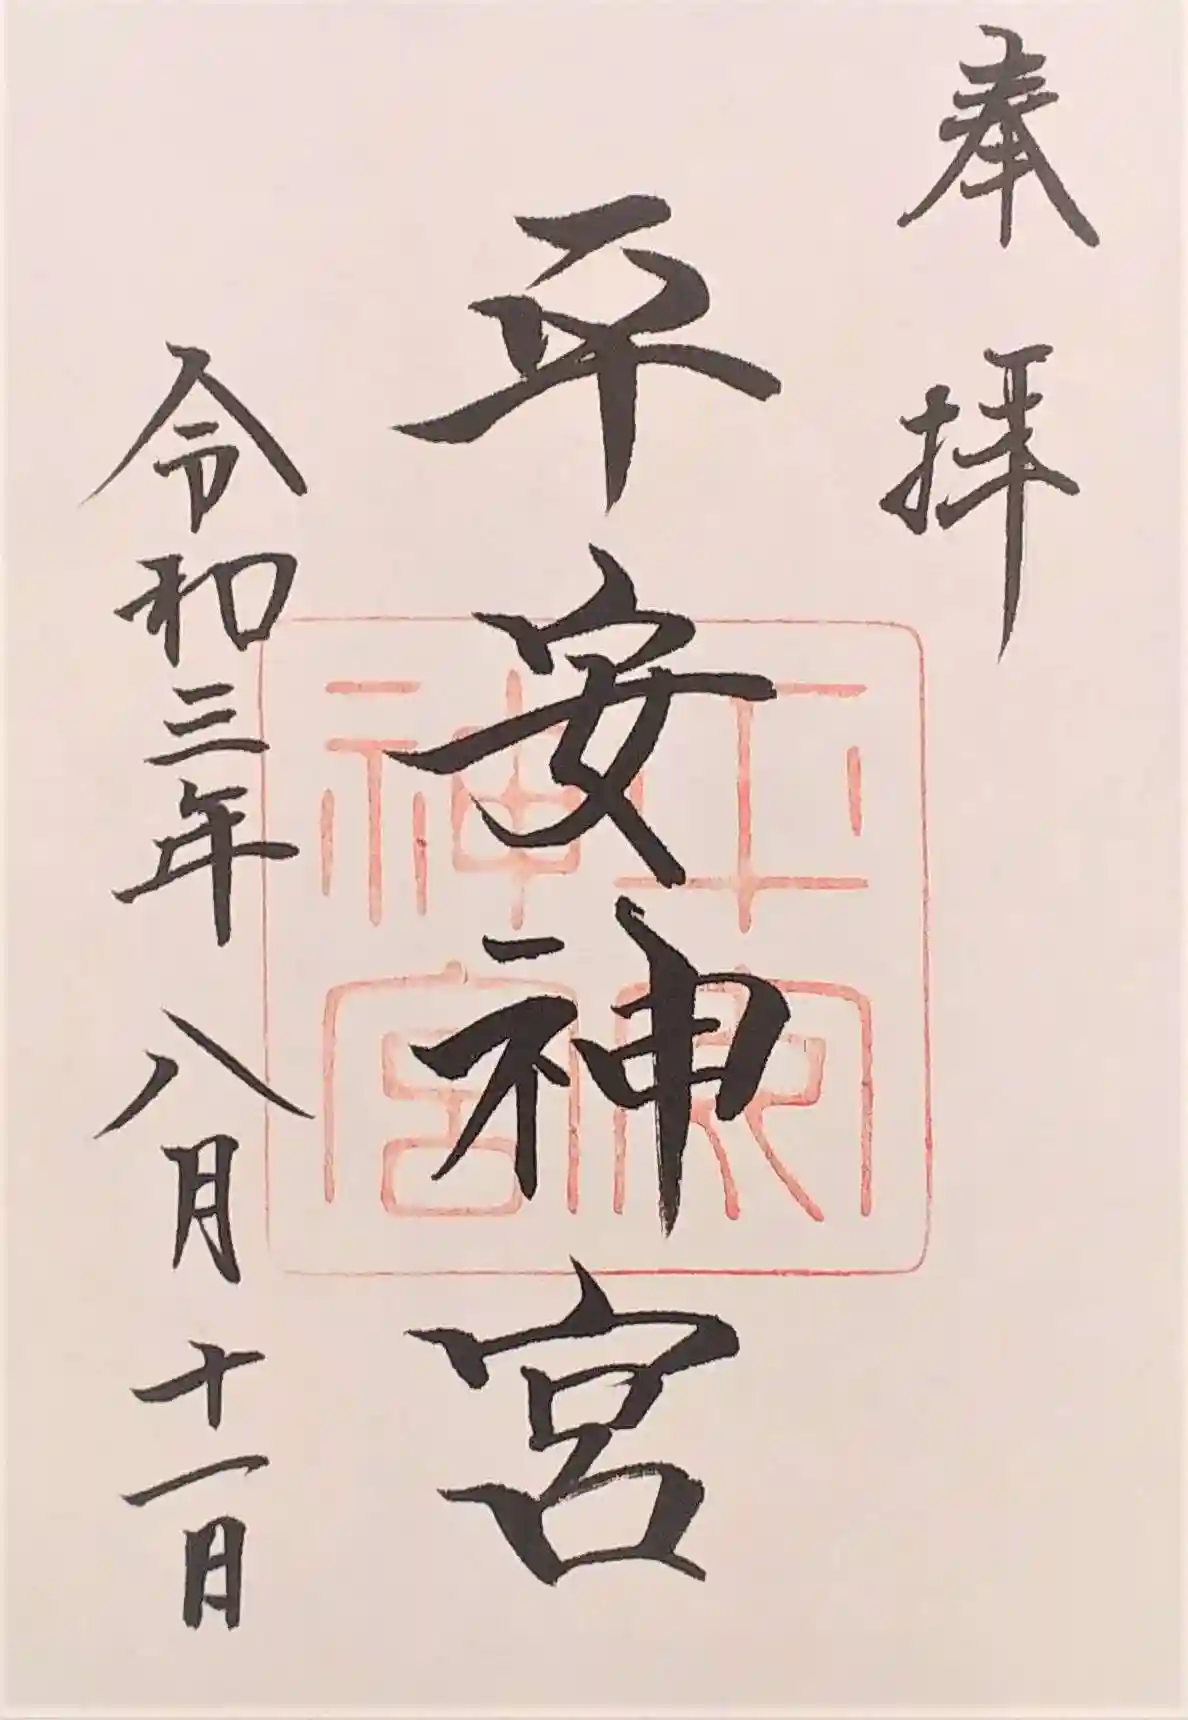 奉拝
平安神宮
令和三年八月十一日
平安神宮